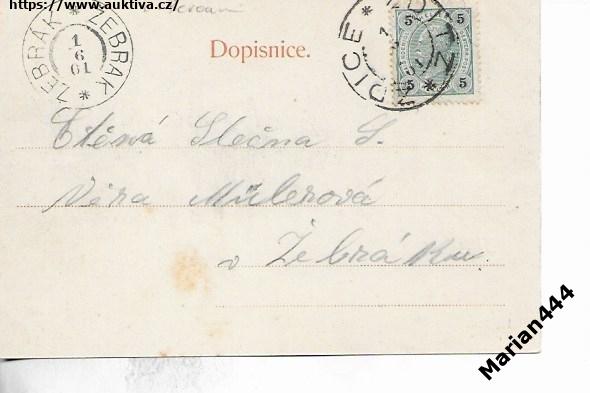 https://www.auktiva.cz/
ŽEBRÁK * ŽEBRAK *
1
6
01
Dopisnice.
ZDICE * ZDITZ *
5 5
5 5
Ctěná Slečna S.
Věra Müllerová
v Žebráku.
Marian444